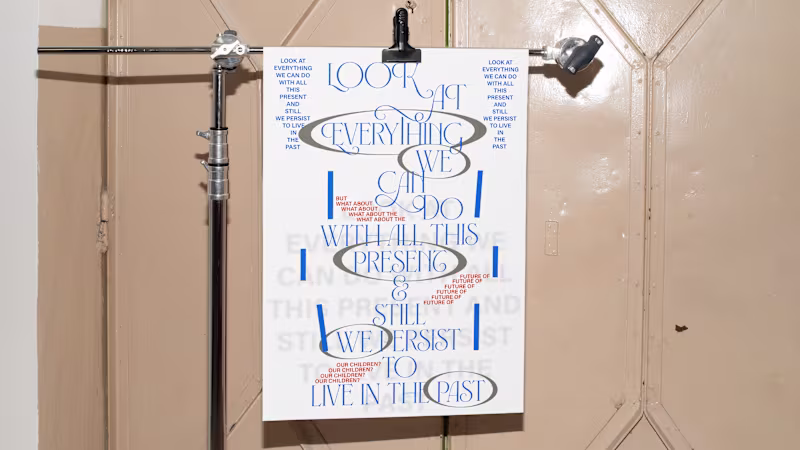 LOOK AT
EVERYTHING
WE CAN DO
WITH ALL
THIS
PRESENT
AND
STILL
WE PERSIST
TO LIVE
IN
THE
PAST
LOOK
AT
EVERYTHING
WE
CAN
DO
WITH ALL THIS
PRESENT
&
STILL
WE PERSIST
TO
LIVE IN THE PAST
LOOK AT
EVERYTHING
WE CAN DO
WITH ALL
THIS
PRESENT
AND
STILL
WE PERSIST
TO LIVE
IN
THE
PAST
BUT
WHAT ABOUT
WHAT ABOUT
WHAT ABOUT THE
WHAT ABOUT THE
FUTURE OF
FUTURE OF
FUTURE OF
FUTURE OF
FUTURE OF
FUTURE OF
OUR CHILDREN?
OUR CHILDREN?
OUR CHILDREN?
OUR CHILDREN?
EVERYTHING WE
CAN DO WITH ALL
THIS PRESENT AND
STILL WE PERSIST
TO LIVE IN THE
PAST